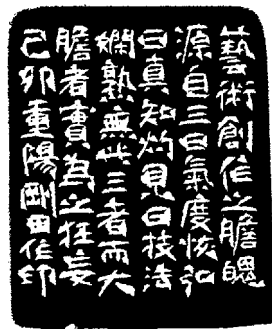 藝術創作之膽魄
源自三曰氣度恢弘
曰真知灼見曰技法
嫻熟無此三者而大
膽者實為之狂妄
己卯重陽剛田作印